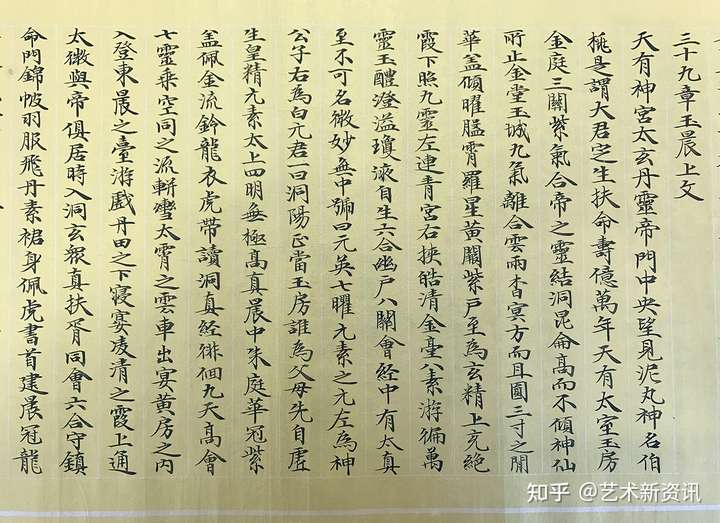 三十九章玉晨上文
天有神宮太玄丹靈帝門中央望見泥丸神名伯
桃是謂大君定生扶命壽億萬年天有太室玉房
金庭三關紫氣合帝之靈結洞昆侖高而不傾神仙
所止金堂玉城九氣離合雲雨杳冥方而且圓三寸之間
華盖傾曜膃霄羅星黃闕紫戶至為玄精上充絕
霞下照九靈左連青宮右挾皓清金臺八素游徧萬
靈玉醴澄溢瓊液自生六合幽戶八關會經中有太真
至不可名微妙無中號曰元英七曜元素之元左為神
公子右為白元君一曰洞陽正當玉房誰為父母先自虛
生皇精元素太上四明無極高真晨中朱庭華冠紫
盖佩金流鈴龍衣虎帶讀洞真經徘徊九天高會
七靈乘空同之流軿轡太霄之雲車出宴黃房之內
入登東晨之臺游戲丹田之下寝宴凌清之霞上通
太微與帝俱居時入洞玄衆真扶胥同會六合守鎮
命門錦帔羽服飛丹素裙身佩虎書首建晨冠龍
知乎 @艺术新资讯